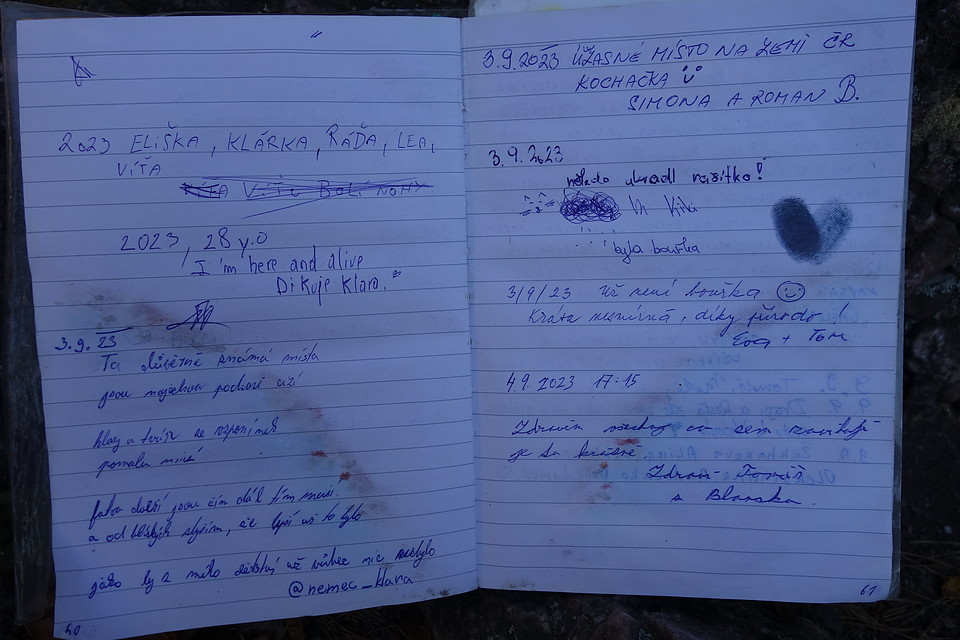 2023 ELIŠKA, KLÁRKA, RÁĎA, LEA,
VÍŤA
2023, 28 y.o
I'm here and alive
Děkuje Klara."
3.9.23
Ta důvěrně známá místa
jsou najednou pochací cizí
hlasy a tváře ze vzpomínek
pomalu mizí
fakta další jsou čím dál tím menší
a od blízkých slyším, že lepší už to bylo
jako by z mého dětství už vůbec nic nezbylo
@nemec_klara
60
3.9.2023 ÚŽASNÉ MÍSTO NA ZEMI ČR
KOCHAČKA
SIMONA A ROMAN B.
3.9.2023
někdo ukradl razítko!
byla bouřka
3/9/23 Už není bouřka ☺
Krása nesmírná, díky přírodo!
Eva + Tom
4.9.2023 17:15
Zdravím všechny co sem zavítají
je tu krásně.
Zdraví Tomáš
a Blanska
61